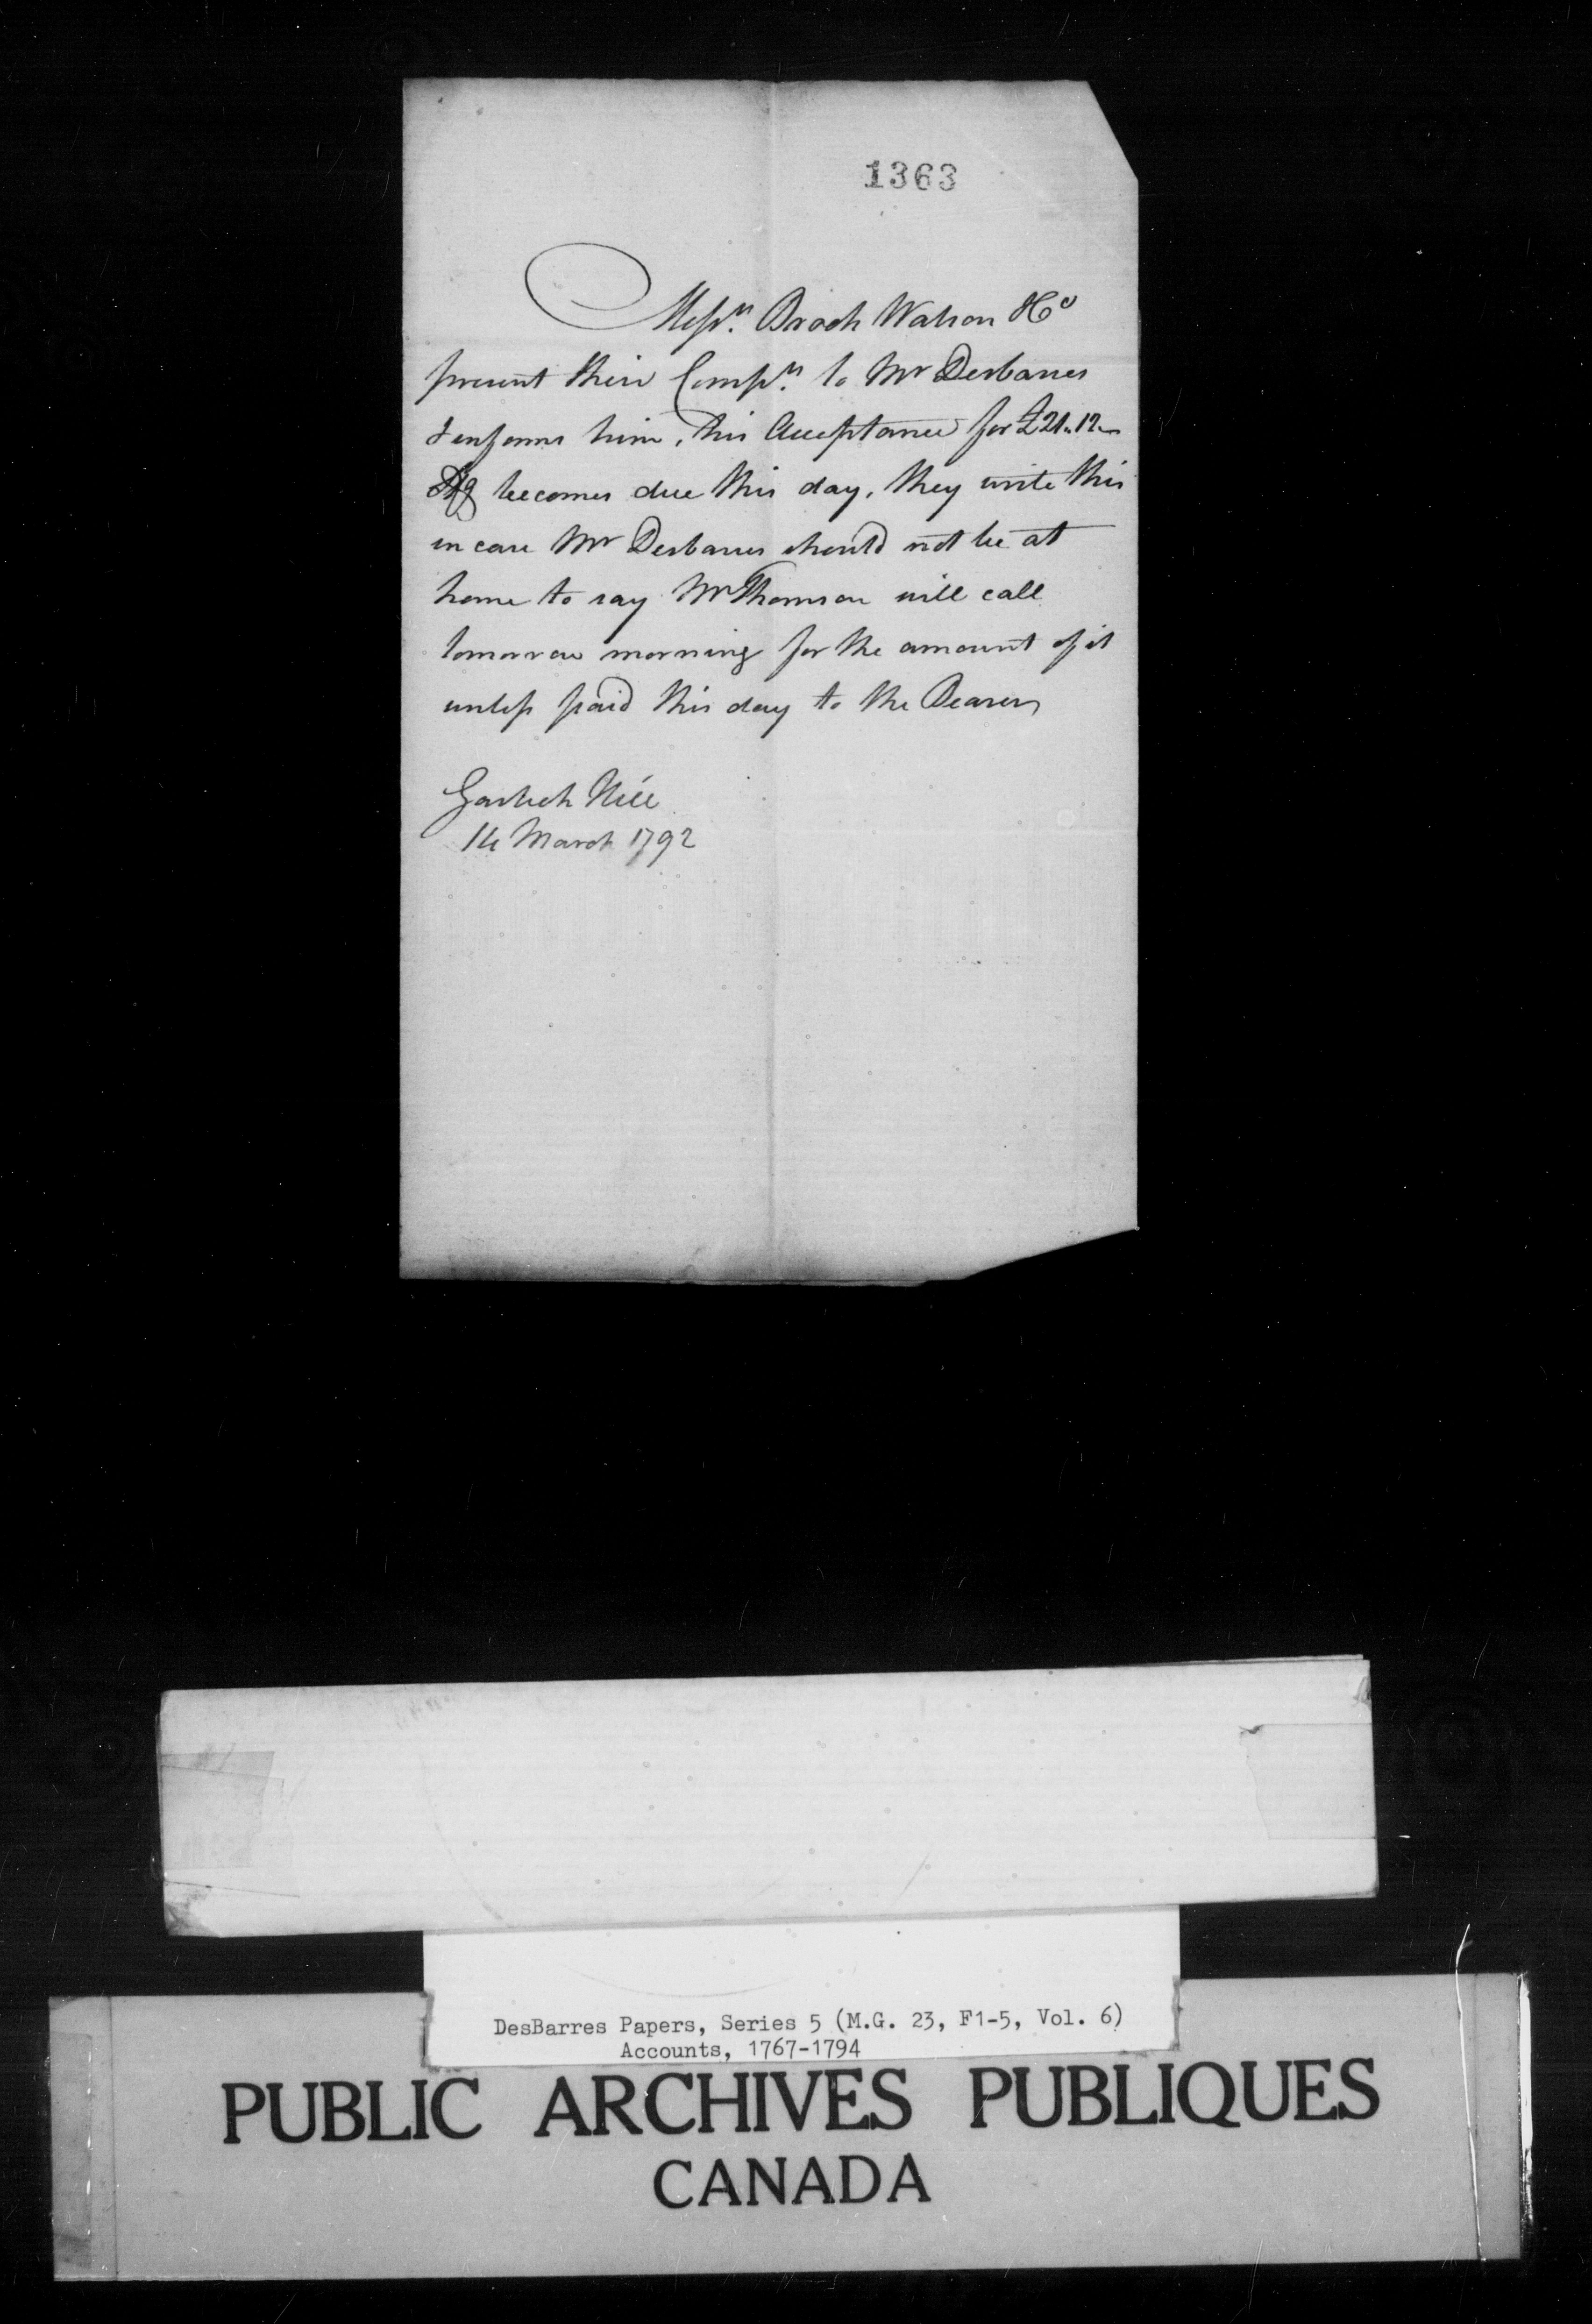 1363
Messrs. Brook Watson & Co
present their Compts. to Mr Desbarres
& informs him, his Acceptance for £21.12
Stg becomes due this day, they write this
in case Mr Desbarres should not be at
home to say Mr Thomson will call
tomorrow morning for the amount of it
unless paid this day to the Bearer
Garlick Hill
14 March 1792
DesBarres Papers, Series 5 (M.G. 23, F1-5, Vol. 6)
Accounts, 1767-1794
PUBLIC ARCHIVES PUBLIQUES
CANADA